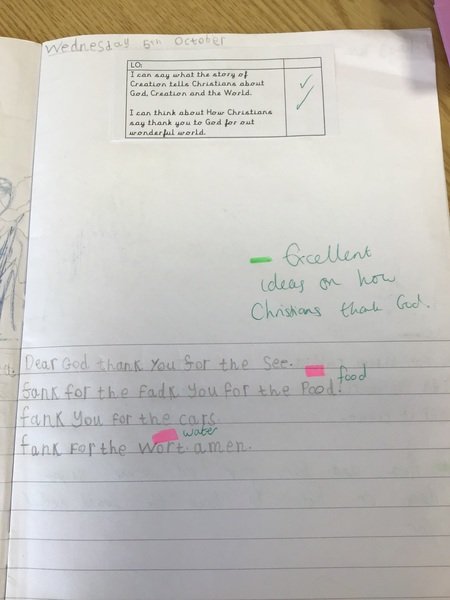 Wednesday 5th October
LO:
I can say what the story of
Creation tells Christians about
God, Creation and the World.
I can think about How Christians
say thank you to God for out
wonderful world.
Excellent
ideas on how
Christians thank God.
Dear God thank you for the See.
food
fank for the Fadk you for the Pood.
fank you For the cars
water
fank For the Wort. amen.